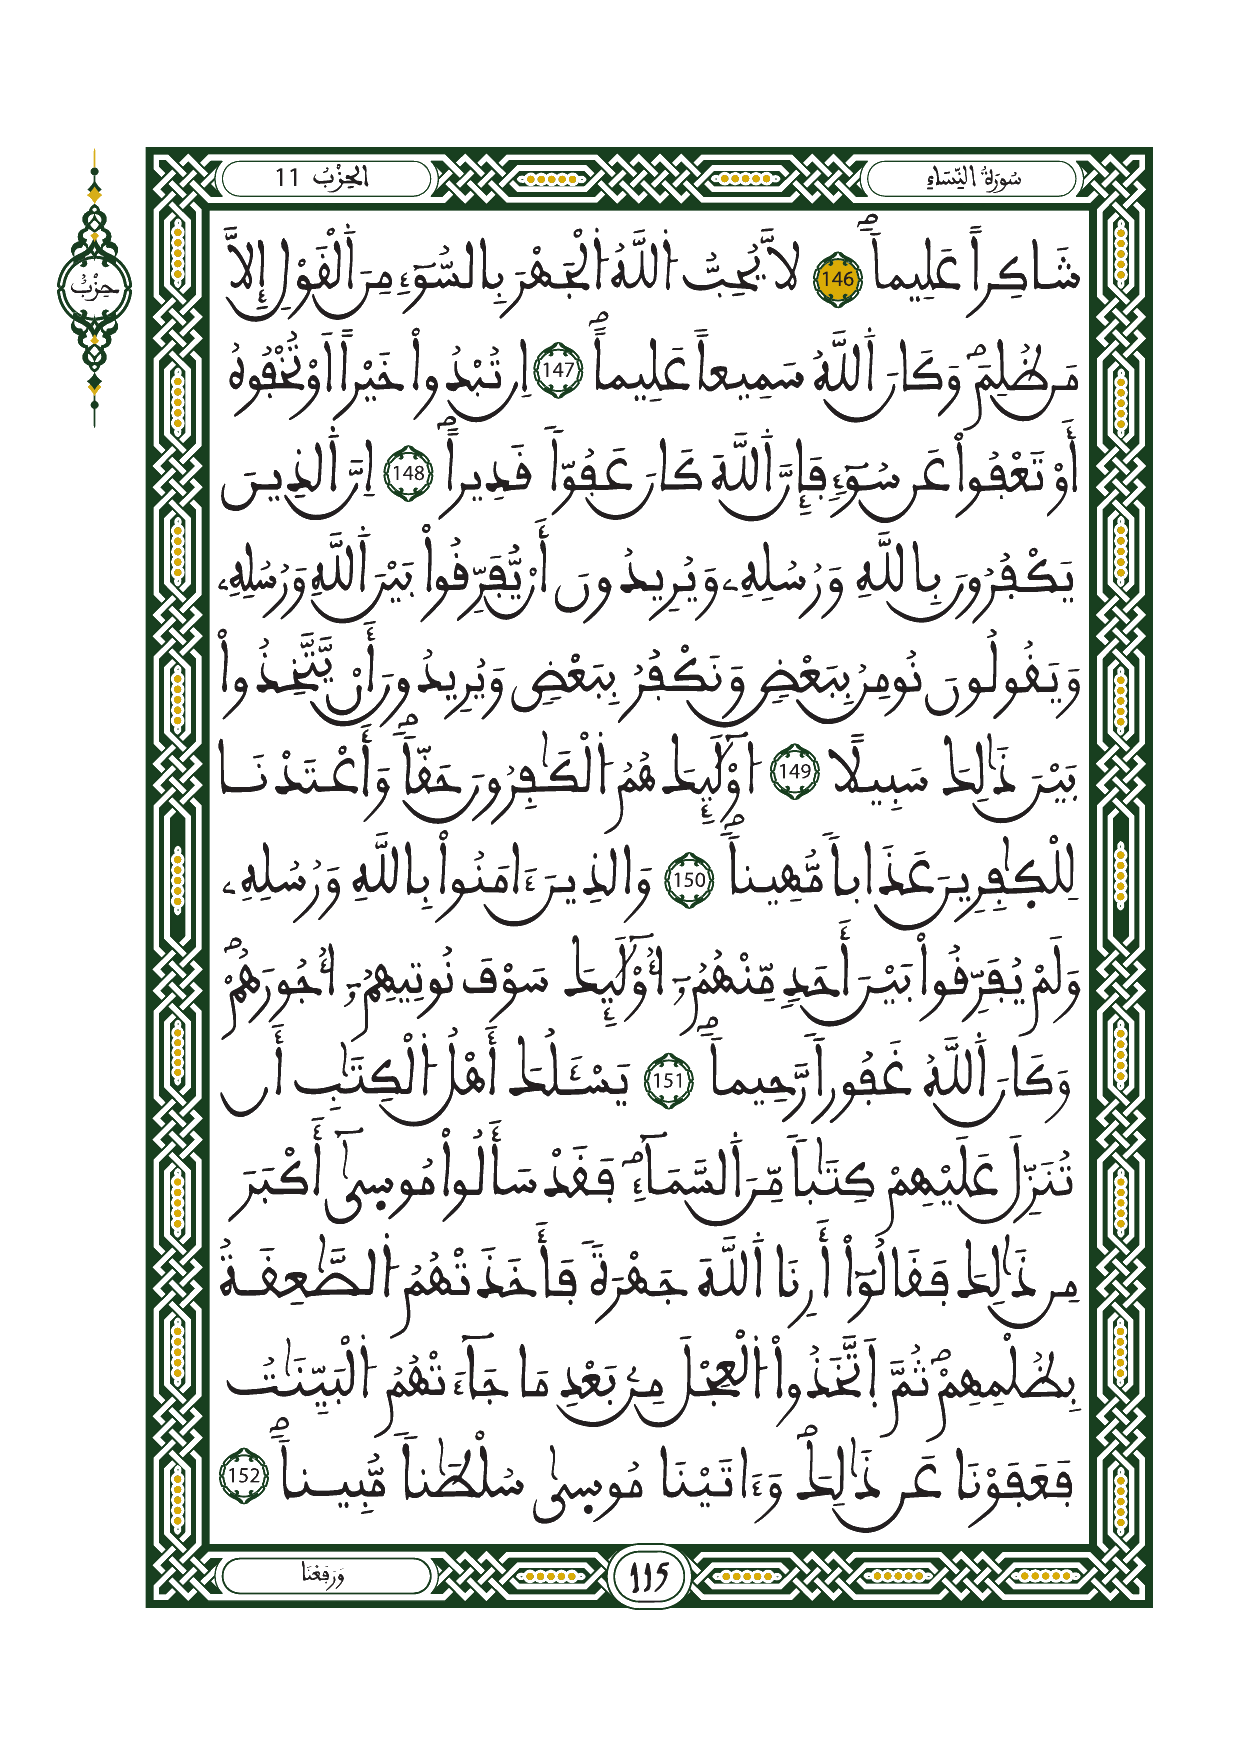 سُورَةُ النِّسَاءِ
الحِزْبُ 11
حِزْبُ
شَاكِراً عَلِيماًۖ 146 لَّا يُحِبُّ اُ۬للَّهُ اُ۬لْجَهْرَ بِالسُّوٓءِ مِنَ اَ۬لْقَوْلِ إِلَّا
مَن ظُلِمَۖ وَكَانَ اَ۬للَّهُ سَمِيعاً عَلِيماًۖ 147 اِن تُبْدُواْ خَيْراً اَوْ تُخْفُوهُ
أَوْ تَعْفُواْ عَن سُوٓءٖ فَإِنَّ اَ۬للَّهَ كَانَ عَفُوّاٗ قَدِيراًۖ 148 اِنَّ اَ۬لذِينَ
يَكْفُرُونَ بِاللَّهِ وَرُسُلِهِۦ وَيُرِيدُونَ أَنْ يُّفَرِّقُواْ بَيْنَ اَ۬للَّهِ وَرُسُلِهِۦ
وَيَقُولُونَ نُومِنُ بِبَعْضٖ وَنَكْفُرُ بِبَعْضٖ وَيُرِيدُونَ أَنْ يَّتَّخِذُواْ
بَيْنَ ذَٰلِكَ سَبِيلًا 149 اوْلَٰٓئِكَ هُمُ اُ۬لْكَٰفِرُونَ حَقّاٗۖ وَأَعْتَدْنَا
لِلْكٰ۪فِرِينَ عَذَاباٗ مُّهِيناٗۖ 150 وَالذِينَ ءَامَنُواْ بِاللَّهِ وَرُسُلِهِۦ
وَلَمْ يُفَرِّقُواْ بَيْنَ أَحَدٖ مِّنْهُمُۥٓ أُوْلَٰٓئِكَ سَوْفَ نُوتِيهِمُۥٓ أُجُورَهُمْۖ
وَكَانَ اَ۬للَّهُ غَفُوراٗ رَّحِيماٗۖ 151 يَسْـَٔلُكَ أَهْلُ اُ۬لْكِتَٰبِ أَن
تُنَزِّلَ عَلَيْهِمْ كِتَٰباٗ مِّنَ اَ۬لسَّمَآءِۖ فَقَدْ سَأَلُواْ مُوس۪ىٰٓ أَكْبَرَ
مِن ذَٰلِكَ فَقَالُوٓاْ أَرِنَا اَ۬للَّهَ جَهْرَةٗ فَأَخَذَتْهُمُ اُ۬لصَّٰعِقَةُ
بِظُلْمِهِمْۖ ثُمَّ اَتَّخَذُواْ اُ۬لْعِجْلَ مِنۢ بَعْدِ مَا جَآءَتْهُمُ اُ۬لْبَيِّنَٰتُ
فَعَفَوْنَا عَن ذَٰلِكَۖ وَءَاتَيْنَا مُوس۪ىٰ سُلْطَٰناٗ مُّبِيناٗۖ 152
115
وَرَفَعْنَا